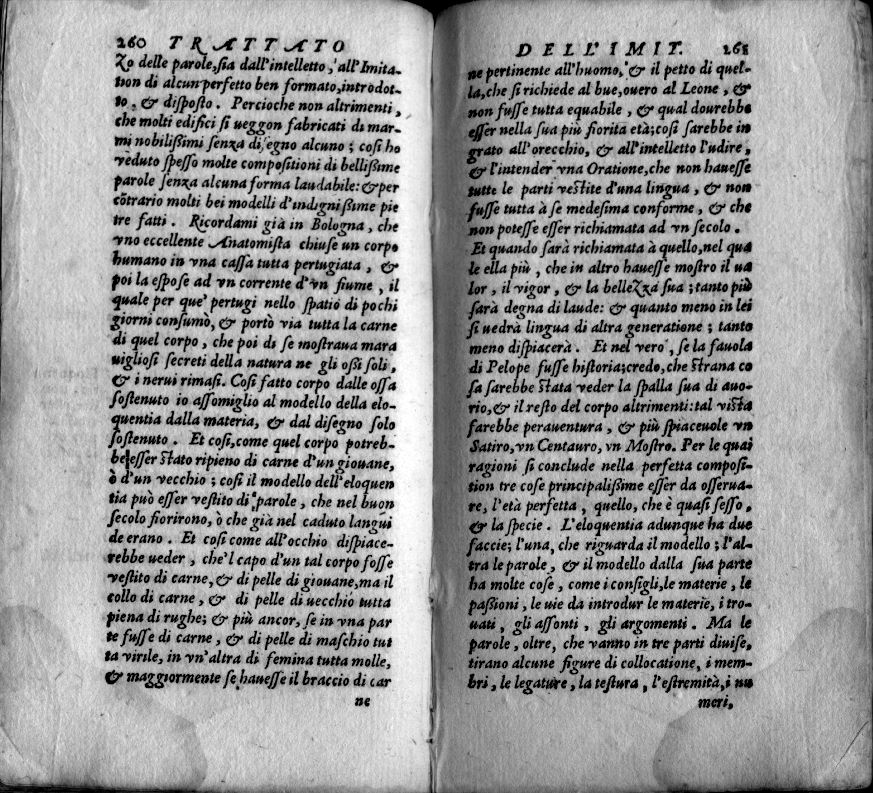 260 TRATTATO
Zo delle parole, sia dall'intelletto, all'Imita-
tion di alcun perfetto ben formato, introdot-
to, & disposto. Percioche non altrimenti,
che molti edifici si ueggon fabricati di mar-
mi nobilißimi senza disegno alcuno; cosi ho
veduto spesso molte compositioni di bellißime
parole senza alcuna forma laudabile: & per
cōtrario molti bei modelli d'indignißime pie
tre fatti. Ricordami già in Bologna, che
vno eccellente Anatomista chiuse un corpo
humano in vna cassa tutta pertugiata, &
poi la espose ad vn corrente d'vn fiume, il
quale per que' pertugi nello spatio di pochi
giorni consumò, & portò via tutta la carne
di quel corpo, che poi di se mostraua mara
uigliosi secreti della natura ne gli oßi soli,
& i nerui rimasi. Cosi fatto corpo dalle ossa
sostenuto io assomiglio al modello della elo-
quentia dalla materia, & dal disegno solo
sostenuto. Et cosi, come quel corpo potreb-
be esser stato ripieno di carne d'un giouane,
ò d'un vecchio; cosi il modello dell'eloquen
tia può esser vestito di parole, che nel buon
secolo fiorirono, ò che già nel caduto langui
de erano. Et cosi come all'occhio dispiace-
rebbe ueder, che'l capo d'un tal corpo fosse
vestito di carne, & di pelle di giouane, ma il
collo di carne, & di pelle di uecchio tutta
piena di rughe; & più ancor, se in vna par
te fusse di carne, & di pelle di maschio tut
ta virile, in vn'altra di femina tutta molle,
& maggiormente se hauesse il braccio di car
ne
DELL'IMIT. 261
ne pertinente all'huomo, & il petto di quel-
la, che si richiede al bue, ouero al Leone, &
non fusse tutta equabile, & qual dourebbe
esser nella sua più fiorita età; cosi sarebbe in
grato all'orecchio, & all'intelletto l'udire,
& l'intender vna Oratione, che non hauesse
tutte le parti vestite d'una lingua, & non
fusse tutta à se medesima conforme, & che
non potesse esser richiamata ad vn secolo.
Et quando sarà richiamata à quello, nel qua
le ella più, che in altro hauesse mostro il ua
lor, il vigor, & la belleZza sua; tanto più
sarà degna di laude: & quanto meno in lei
si uedrà lingua di altra generatione; tanto
meno dispiacerà. Et nel vero, se la fauola
di Pelope fusse historia; credo, che strana co
sa sarebbe stata veder la spalla sua di auo-
rio, & il resto del corpo altrimenti: tal vista
sarebbe perauentura, & più spiaceuole vn
Satiro, vn Centauro, vn Mostro. Per le quai
ragioni si conclude nella perfetta composi-
tion tre cose principalißime esser da osserua-
re, l'età perfetta, quello, che è quasi sesso,
& la specie. L'eloquentia adunque ha due
faccie; l'una, che riguarda il modello; l'al-
tra le parole, & il modello dalla sua parte
ha molte cose, come i consigli, le materie, le
paßioni, le uie da introdur le materie, i tro-
uati, gli assonti, gli argomenti. Ma le
parole, oltre, che vanno in tre parti diuise,
tirano alcune figure di collocatione, i mem-
bri, le legature, la testura, l'estremità, i nu
meri,